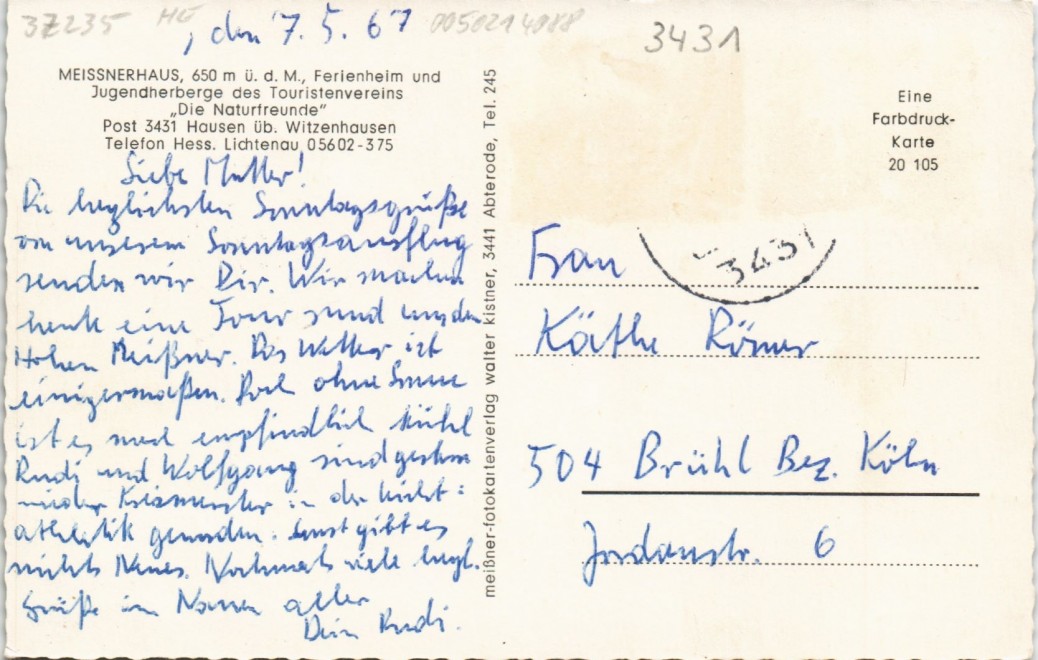 37235 HE
, den 7.5.67 0050214088
3431
MEISSNERHAUS, 650 m ü. d. M., Ferienheim und
Jugendherberge des Touristenvereins
„Die Naturfreunde"
Post 3431 Hausen üb. Witzenhausen
Telefon Hess. Lichtenau 05602-375
Liebe Mutter!
Die herzlichsten Sonntagsgrüße
von unserem Sonntagsausflug
senden wir Dir. Wir machen
heute eine Tour rund um den
Hohen Meißner. Das Wetter ist
einigermaßen. Doch ohne Sonne
ist es noch empfindlich kühl
Rudi und Wolfgang sind gestern
wieder Kreismeister in der Leicht=
athletik geworden. Sonst gibt es
nichts Neues. Nochmals viele herzl.
Grüße im Namen aller
Dein Rudi.
meißner-fotokartenverlag walter kistner, 3441 Abterode, Tel. 245
Eine
Farbdruck-
Karte
20 105
3431
Frau
Käthe Römer
504 Brühl Bez. Köln
Jordanstr. 6